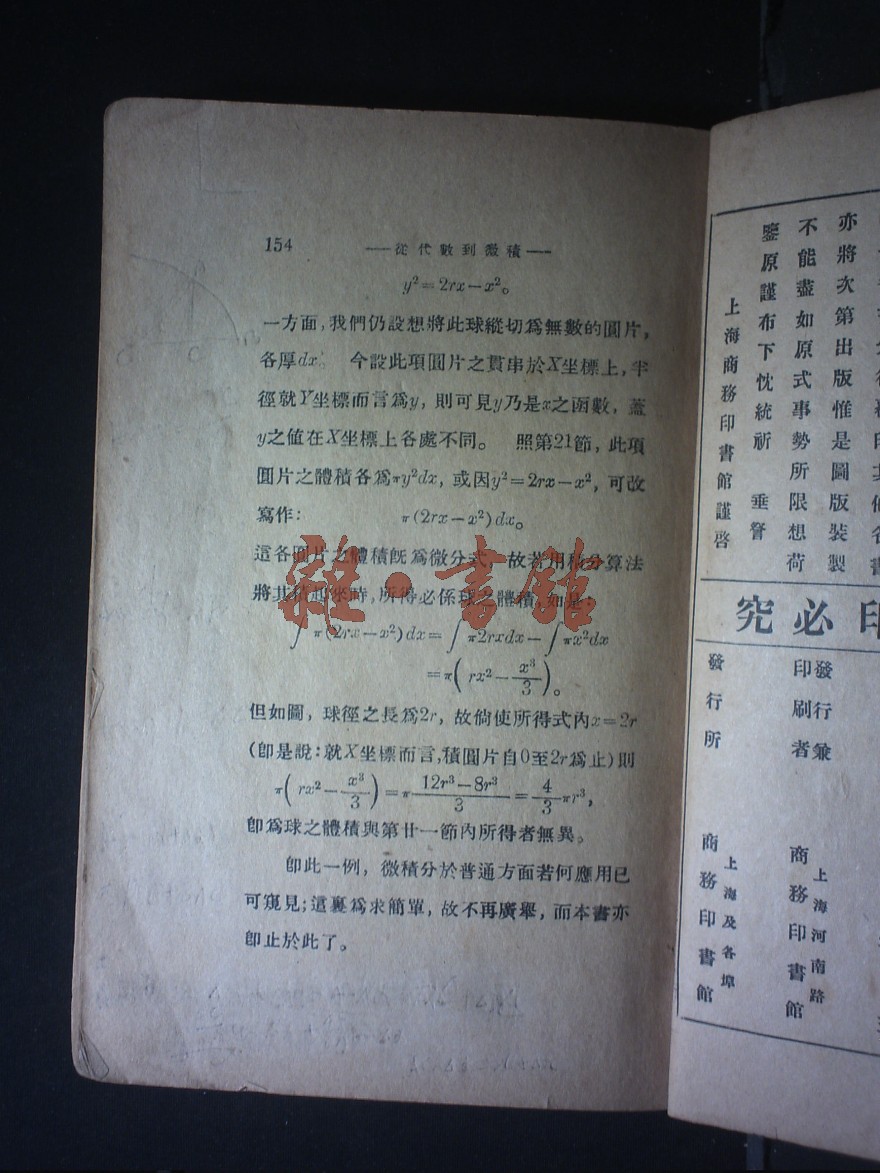 154 ——從代數到微積——
y²=2rx−x²。
一方面,我們仍設想將此球縱切爲無數的圓片,
各厚dx。 今設此項圓片之貫串於X坐標上,半
徑就Y坐標而言爲y,則可見y乃是x之函數,蓋
y之值在X坐標上各處不同。 照第21節,此項
圓片之體積各爲πy²dx,或因y²=2rx−x²,可改
寫作: π(2rx−x²)dx。
這各圓片之體積旣爲微分式,故若用積分算法
將其積起來時,所得必係球之體積,如是
∫π(2rx−x²)dx=∫π2rxdx−∫πx²dx
=π(rx²−x³/3)。
但如圖,球徑之長爲2r,故倘使所得式內x=2r
(卽是說:就X坐標而言,積圓片自0至2r爲止)則
π(rx²−x³/3)=π 12r³−8r³/3=4/3 πr³,
卽爲球之體積與第廿一節內所得者無異。
卽此一例,微積分於普通方面若何應用已
可窺見;這裏爲求簡單,故不再廣舉,而本書亦
卽止於此了。
雜·書館
亦將次第出版惟是圖版裝製
不能盡如原式事勢所限想荷
鑒原謹布下忱統祈 垂詧
上海商務印書館謹啓
印必究
發行兼
印刷者
上海河南路
商務印書館
發行所
上海及各埠
商務印書館